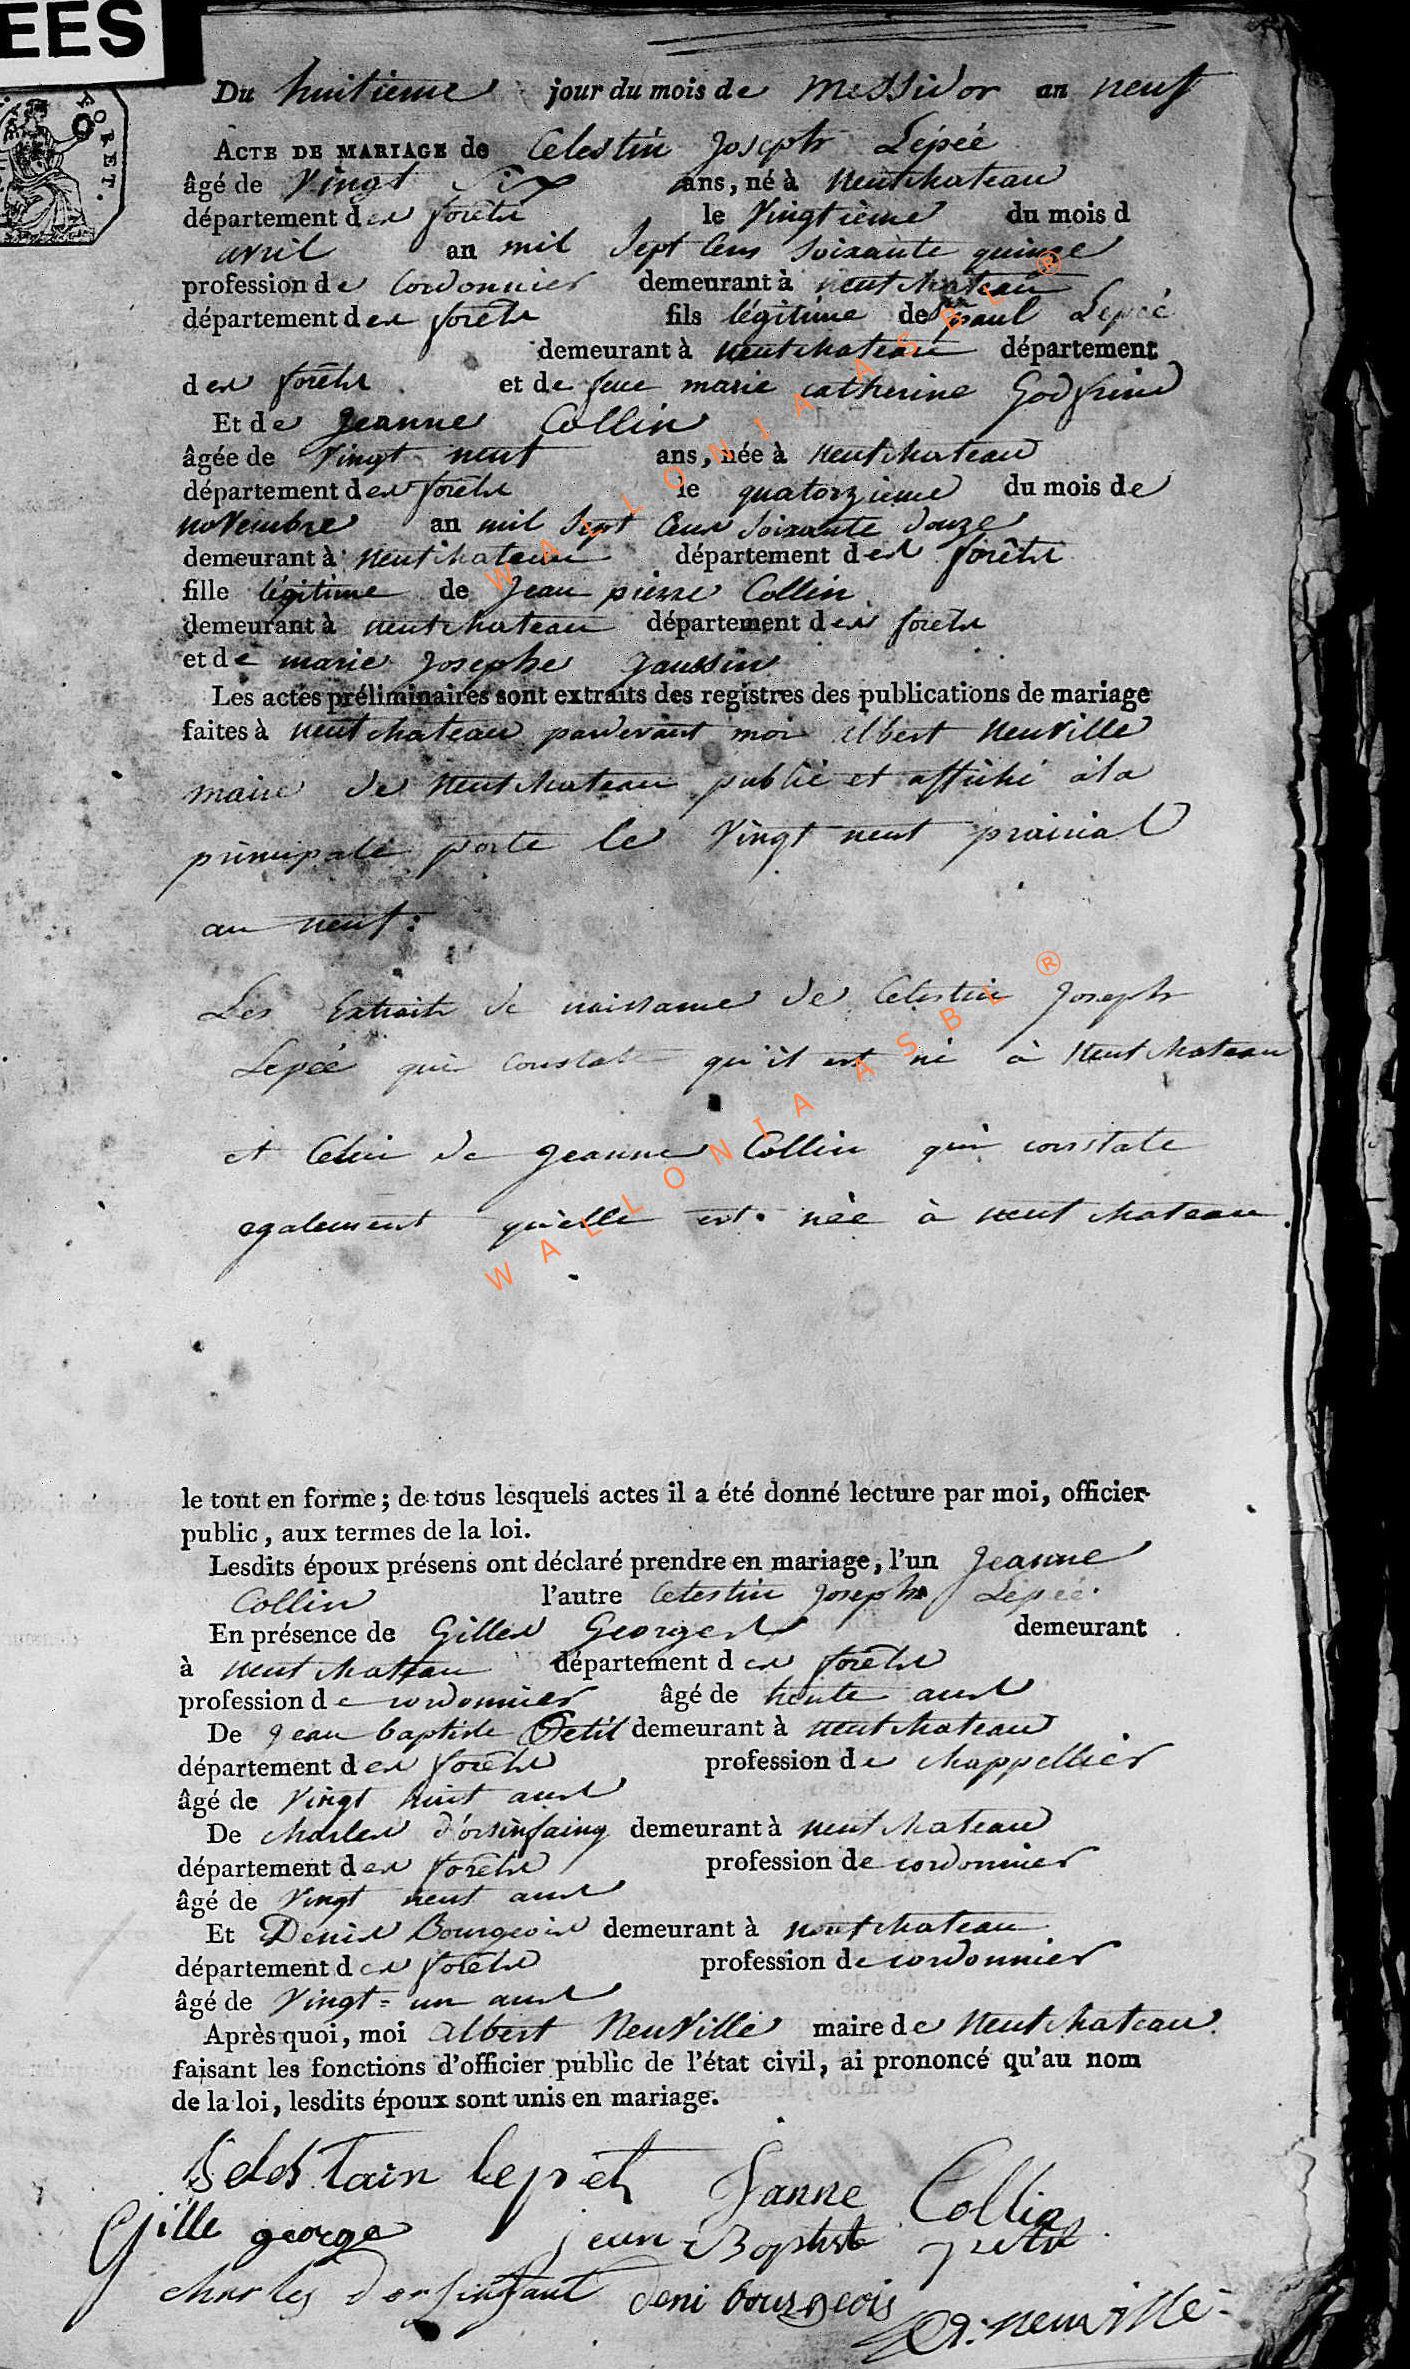 EES
FORET.
Du huitieme jour du mois de messidor an neuf
ACTE DE MARIAGE de Celestin Joseph Lépéé
âgé de vingt six ans, né à neufchateau
département des forêts le vingtieme du mois d
avril an mil sept cens soixante quinze
profession de cordonnier demeurant à neufchateau
département des forêts fils légitime de paul Lepéé
demeurant à neufchateau département
des forêts et de feue marie catherine Godfrind
Et de Jeanne Collin
âgée de vingt neuf ans, née à neufchateau
département des forêts le quatorzieme du mois de
novembre an mil sept cens soixante douze
demeurant à neufchateau département des forêts
fille légitime de Jean pierre Collin
demeurant à neufchateau département des forêts
et de marie Josephe Jaussin
Les actes préliminaires sont extraits des registres des publications de mariage
faites à neufchateau pardevant moi albert neuville
maire de neufchateau publié et affiché à la
principale porte le vingt neuf prairial
an neuf:
Les Extraits de naissance de Celestin Joseph
Lepéé qui constate qu'il est né à neufchateau
et celui de Jeanne Collin qui constate
egalement qu'elle est née à neufchateau.
le tout en forme; de tous lesquels actes il a été donné lecture par moi, officier
public, aux termes de la loi.
Lesdits époux présens ont déclaré prendre en mariage, l'un Jeanne
Collin l'autre Celestin Joseph Lépéé.
En présence de Gilles Georges demeurant
à neufchateau département des forêts
profession de cordonnier âgé de trente ans
De Jean baptiste Petit demeurant à neufchateau
département des forêts profession de chappellier
âgé de vingt huit ans
De charles d'orsinfaing demeurant à neufchateau
département des forêts profession de cordonnier
âgé de vingt neuf ans
Et Denis Bourgeois demeurant à neufchateau
département des forêts profession de cordonnier
âgé de vingt=un ans
Après quoi, moi albert neuville maire de neufchateau
faisant les fonctions d'officier public de l'état civil, ai prononcé qu'au nom
de la loi, lesdits époux sont unis en mariage.
Selestain Janne Collin
Gille george jean Baptiste petit
charles dorsinfant deni bourgeois
A: neuville
WALLONIA ASBL ®
WALLONIA ASBL ®